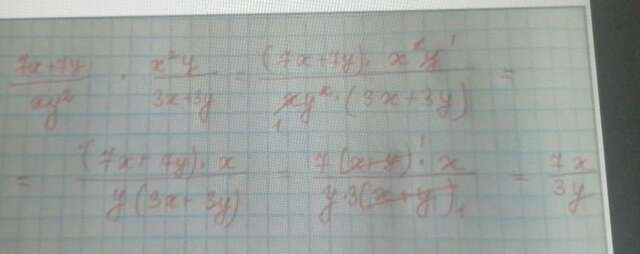 (7x+7y)/(xy²) · (x²y)/(3x+3y) = ((7x+7y) · x²y)/(xy² · (3x+3y)) =
= ((7x+7y) · x)/(y(3x+3y)) = (7(x+y) · x)/(y·3(x+y)) = 7x/3y